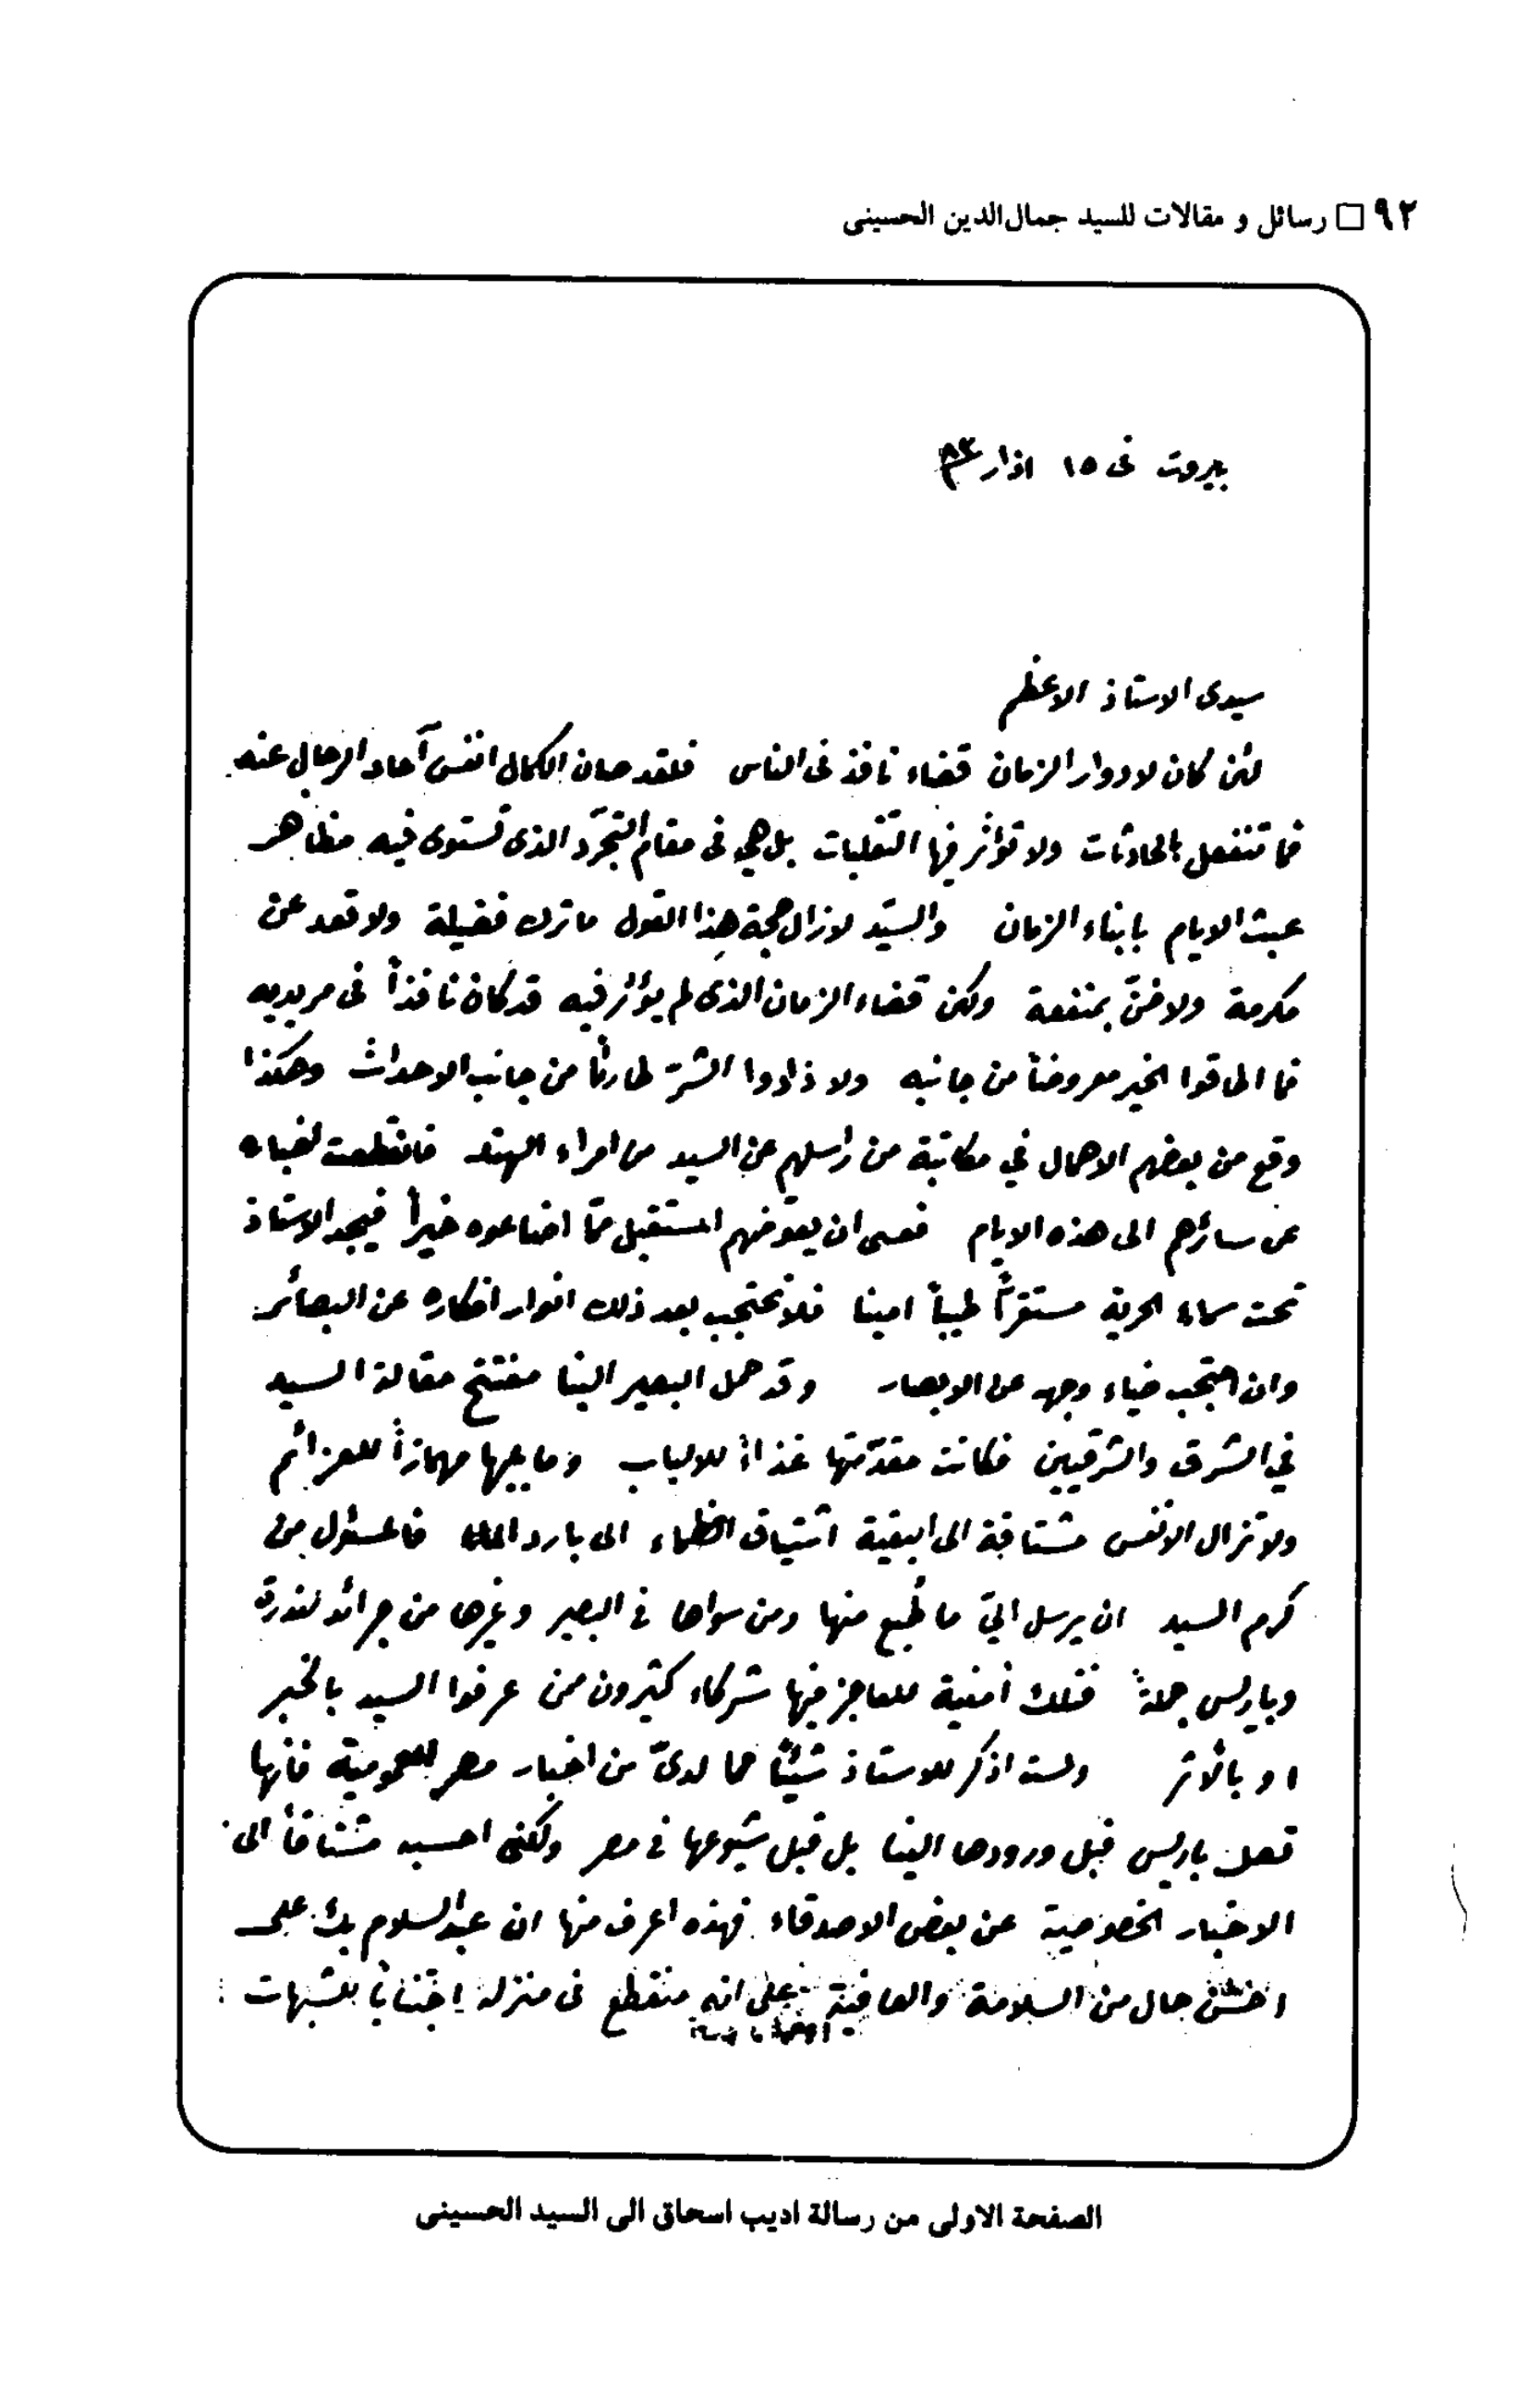 ٩٢ □ رسائل و مقالات للسيد جمال‌الدين الحسينى
بيروت فى ١٥ اذار ٨٣
سيدى الاستاذ الاعظم
لئن كان لادوار الزمان قضاء نافذ فى الناس فلقد صان الكمال انفس آحاد الرجال عنه
فما تنفعل بالحادثات ولا تؤاثر فيها التقلبات بل هي فى مقام التجرّد الذى تستوى فيه مظاهر
عبث الايام بابناء الزمان والسيّد لازال حجة هذا القول ما ترك فضيلة ولا قعد عن
مكرمة ولا ضنّ بمنفعة ولكن قضاء الزمان الذى لم يؤثر فيه قد كان نافذاً فى مريديه
فما اطاقوا الخير معروضاً من جانبه ولا ذادوا الشرّ طارئاً من جانب الاحداث وهكذا
وقع من بعضهم الاهمال في مكاتبة من راسلهم عن السيد من امراء الهند فانقطعت اخباره
عن سائرهم الى هذه الايام فعسى ان يعوّضهم المستقبل ممّا اضاعوه خيراً فيجد الاستاذ
تحت سماء الحرية مستقراً طيباً امينا فلا تحتجب بعد ذلك انوار افكاره عن البصائر
وان احتجب ضياء وجهه عن الابصار وقد حمل البصير الينا مفتتح مقالة السيد
في الشرق والشرقيين فكانت مقدّمتها غذاءً للالباب وما يليها مهمازاً للعزائم
ولا تزال الانفس مشتاقة الى البقية اشتياق الظماء الى بارد الماء فالمسئول من
كرم السيد ان يرسل اليّ ما طُبع منها ومن سواها فى البصير وغيرها من جرائد لندرة
وباريس جملةً فتلك امنية للعاجز فيها شركاء كثيرون ممن عرفوا السيد بالخبر
او بالأثر ولست اذكر للاستاذ شيئاً مما لدىّ من اخبار مصر العمومية فانها
تصل باريس قبل ورودها الينا بل قبل شيوعها فى مصر ولكنى احسبه مشتاقاً الى
الاخبار الخصوصية عن بعض الاصدقاء فهذه اعرف منها ان عبد السلام بك على
احسن حال من السلامة والعافية على انه منقطع فى منزله اجتناباً للشبهات
الصفحة الاولى من رسالة اديب اسحاق الى السيد الحسينى